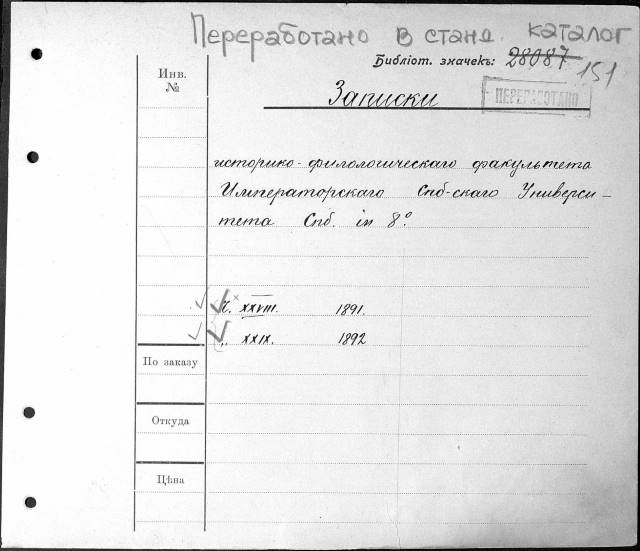 Переработано в станд. каталог
Библіот. значекъ: 28087 151
Инв. №
Записки
ПЕРЕРАБОТАНО
историко-филологическаго факультета
Императорскаго Спб-скаго Универси-
тета Спб. in 8°.
Ч. XXVIII. 1891.
„ XXIX. 1892
По заказу
Откуда
Цѣна